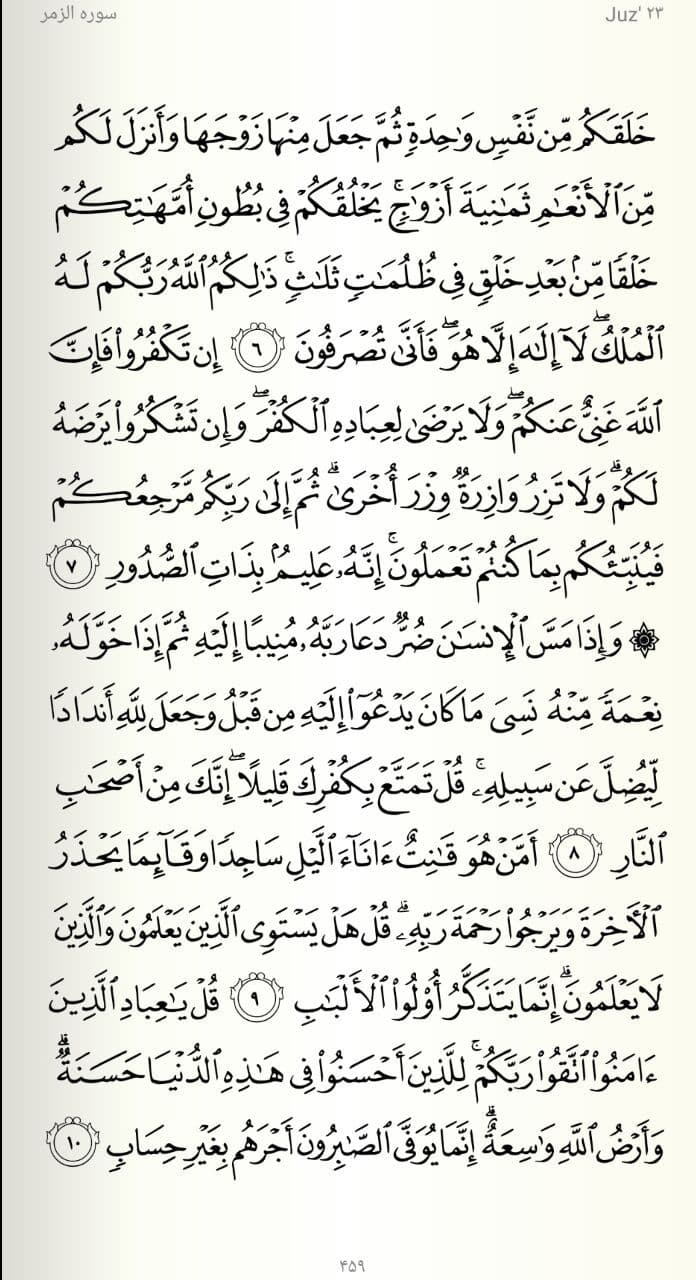 سوره الزمر
Juz' ٢٣
خَلَقَكُم مِّن نَّفۡسٖ وَٰحِدَةٖ ثُمَّ جَعَلَ مِنۡهَا زَوۡجَهَا وَأَنزَلَ لَكُم
مِّنَ ٱلۡأَنۡعَٰمِ ثَمَٰنِيَةَ أَزۡوَٰجٖۚ يَخۡلُقُكُمۡ فِي بُطُونِ أُمَّهَٰتِكُمۡ
خَلۡقٗا مِّنۢ بَعۡدِ خَلۡقٖ فِي ظُلُمَٰتٖ ثَلَٰثٖۚ ذَٰلِكُمُ ٱللَّهُ رَبُّكُمۡ لَهُ
ٱلۡمُلۡكُۖ لَآ إِلَٰهَ إِلَّا هُوَۖ فَأَنَّىٰ تُصۡرَفُونَ ٦ إِن تَكۡفُرُواْ فَإِنَّ
ٱللَّهَ غَنِيٌّ عَنكُمۡۖ وَلَا يَرۡضَىٰ لِعِبَادِهِ ٱلۡكُفۡرَۖ وَإِن تَشۡكُرُواْ يَرۡضَهُ
لَكُمۡۗ وَلَا تَزِرُ وَازِرَةٞ وِزۡرَ أُخۡرَىٰۗ ثُمَّ إِلَىٰ رَبِّكُم مَّرۡجِعُكُمۡ
فَيُنَبِّئُكُم بِمَا كُنتُمۡ تَعۡمَلُونَۚ إِنَّهُۥ عَلِيمُۢ بِذَاتِ ٱلصُّدُورِ ٧
۞ وَإِذَا مَسَّ ٱلۡإِنسَٰنَ ضُرّٞ دَعَا رَبَّهُۥ مُنِيبًا إِلَيۡهِ ثُمَّ إِذَا خَوَّلَهُۥ
نِعۡمَةٗ مِّنۡهُ نَسِيَ مَا كَانَ يَدۡعُوٓاْ إِلَيۡهِ مِن قَبۡلُ وَجَعَلَ لِلَّهِ أَندَادٗا
لِّيُضِلَّ عَن سَبِيلِهِۦۚ قُلۡ تَمَتَّعۡ بِكُفۡرِكَ قَلِيلًاۖ إِنَّكَ مِنۡ أَصۡحَٰبِ
ٱلنَّارِ ٨ أَمَّنۡ هُوَ قَٰنِتٌ ءَانَآءَ ٱلَّيۡلِ سَاجِدٗا وَقَآئِمٗا يَحۡذَرُ
ٱلۡأٓخِرَةَ وَيَرۡجُواْ رَحۡمَةَ رَبِّهِۦۗ قُلۡ هَلۡ يَسۡتَوِي ٱلَّذِينَ يَعۡلَمُونَ وَٱلَّذِينَ
لَا يَعۡلَمُونَۗ إِنَّمَا يَتَذَكَّرُ أُوْلُواْ ٱلۡأَلۡبَٰبِ ٩ قُلۡ يَٰعِبَادِ ٱلَّذِينَ
ءَامَنُواْ ٱتَّقُواْ رَبَّكُمۡۚ لِلَّذِينَ أَحۡسَنُواْ فِي هَٰذِهِ ٱلدُّنۡيَا حَسَنَةٞۗ
وَأَرۡضُ ٱللَّهِ وَٰسِعَةٌۗ إِنَّمَا يُوَفَّى ٱلصَّٰبِرُونَ أَجۡرَهُم بِغَيۡرِ حِسَابٖ ١٠
۴۵۹